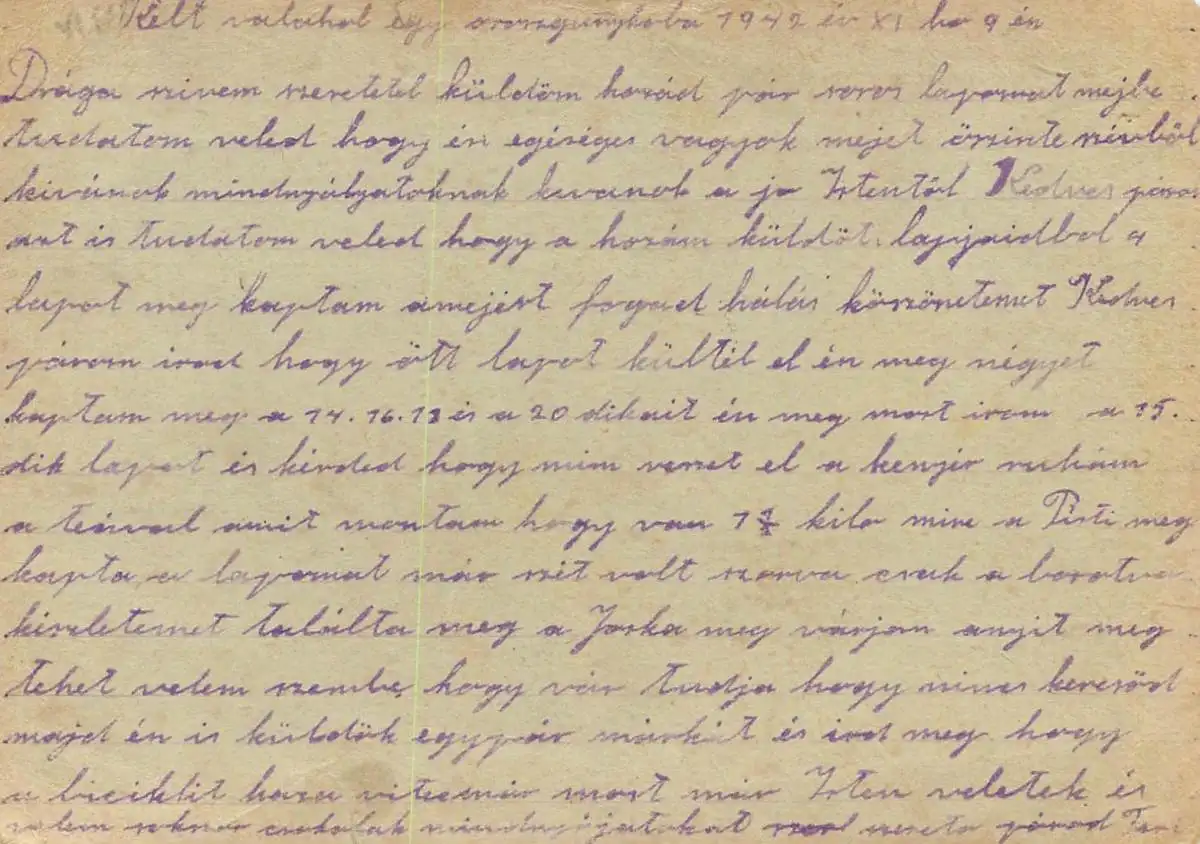 Kelt valahol egy oroszgunyhoba 1942 év XI ho 9 én
Drága szivem szeretetel küldöm hozád pár soros lapomat mejbe
tudatom veled hogy én egéséges vagyok mejet öszinte szivböl
kivánok mindnyályatoknak kivanok a jo Istentöl Kedves párom
azt is tudatom veled hogy a hozám küldöt lapjaidbol 4
lapot meg kaptam amejért fogad hálás köszönetemet Kedves
párom irod hogy ött lapot kültél el én meg négyet
kaptam meg a 14. 16. és a 20 dikait én meg most irom a 15.
dik lapot és kérded hogy mim veszet el a kenyér ruhám
a teával amit montam hogy van kilo mire a Pisti meg
kapta a lapomat már szét volt szorva csak a borotva
készletemet találta meg a Joska meg várjon anyit meg
tehet velem szembe hogy vár tudja hogy nincs keresöd
majd én is küldök egypár márkát és ird meg hogy
a biciklit haza vitted már most már Isten veletek és
velem sokszor csokolak mindnyájatokat szereto párod